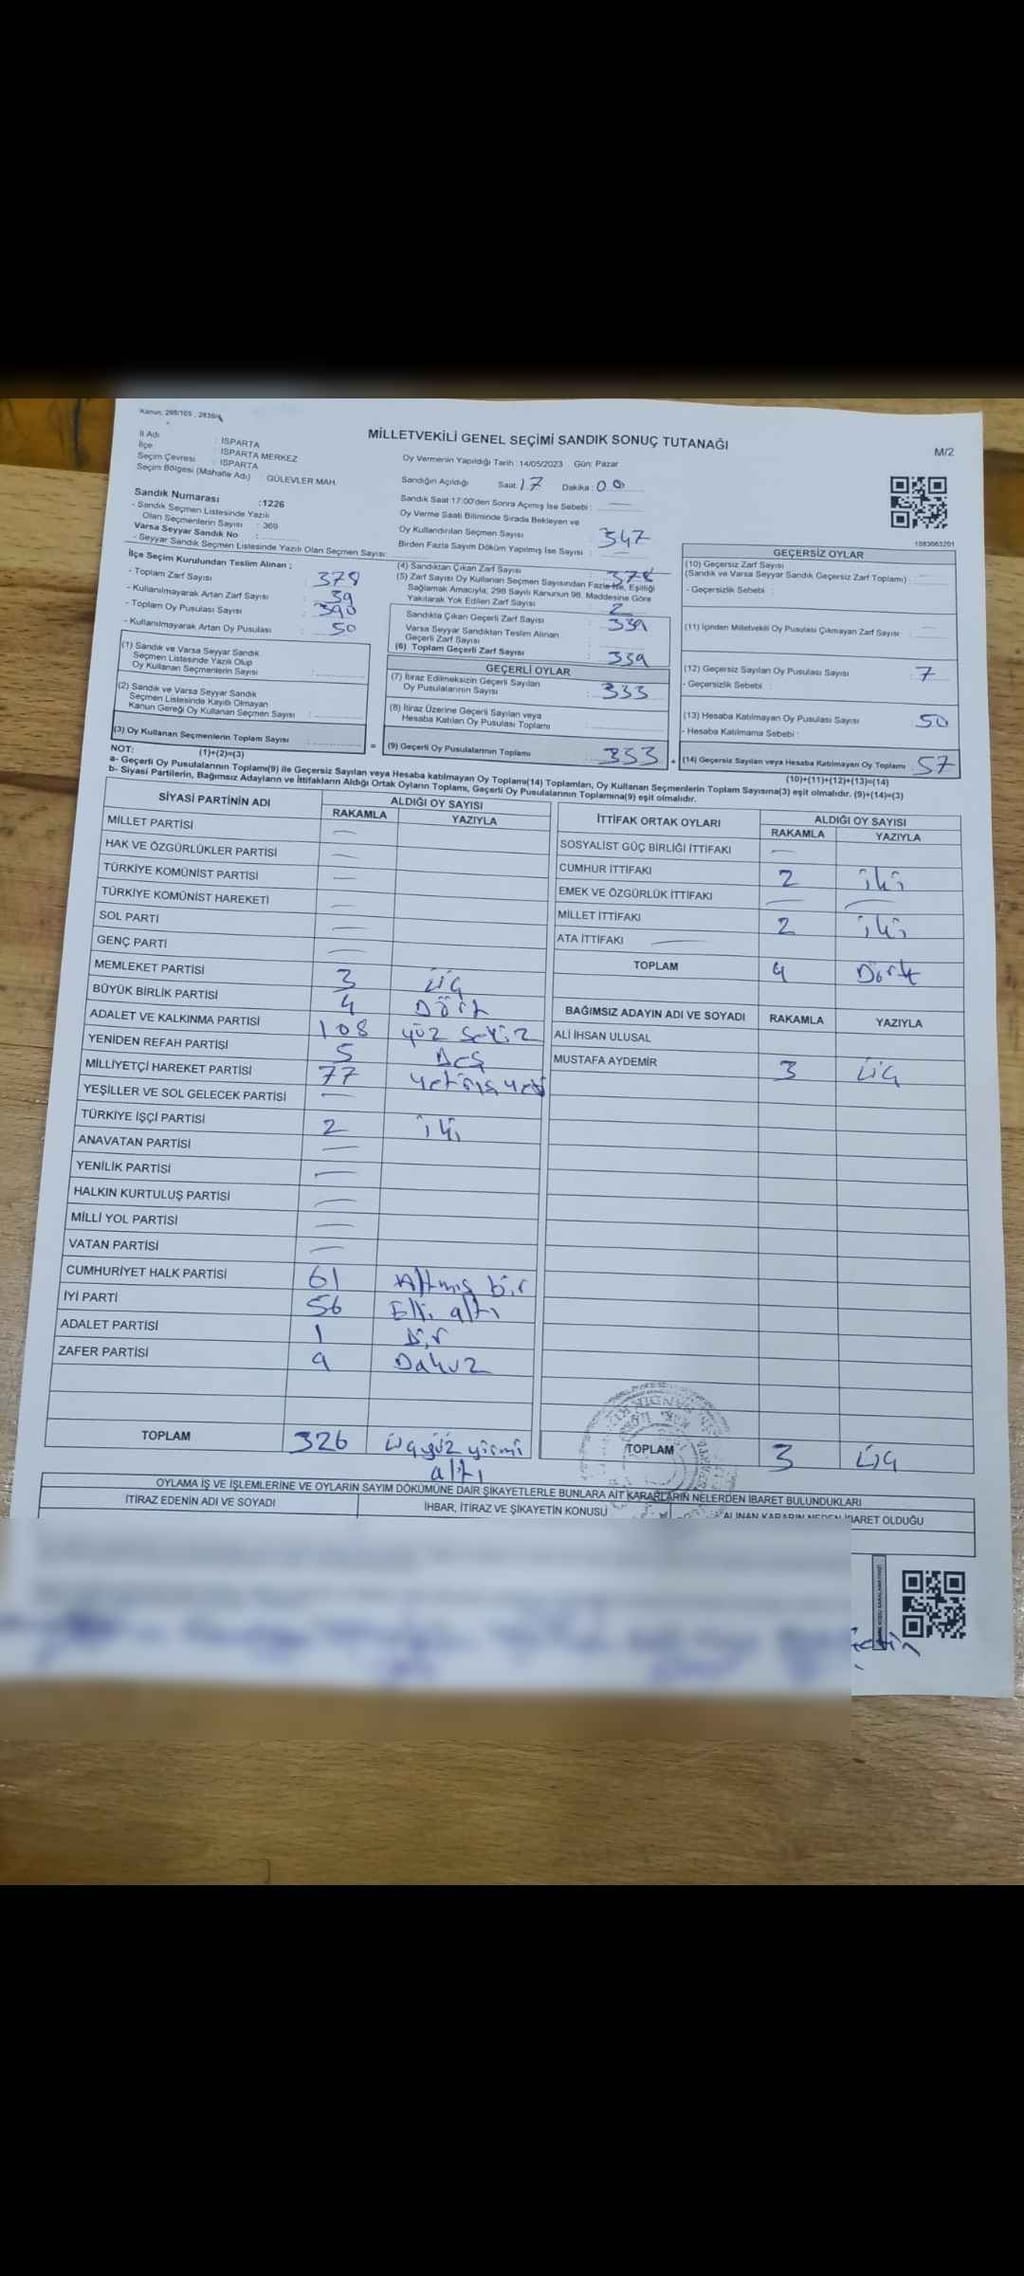 Kanun: 298/105 , 2839/
MİLLETVEKİLİ GENEL SEÇİMİ SANDIK SONUÇ TUTANAĞI
M/2
İl Adı : ISPARTA
İlçe : ISPARTA MERKEZ
Seçim Çevresi : ISPARTA
Seçim Bölgesi (Mahalle Adı) GÜLEVLER MAH.
Oy Vermenin Yapıldığı Tarih : 14/05/2023 Gün: Pazar
Sandığın Açıldığı Saat: 17 Dakika : 00
Sandık Saat 17:00'den Sonra Açılmış İse Sebebi :
Oy Verme Saati Bitiminde Sırada Bekleyen ve
Oy Kullandırılan Seçmen Sayısı 347
Birden Fazla Sayım Döküm Yapılmış İse Sayısı
Sandık Numarası :1226
- Sandık Seçmen Listesinde Yazılı
Olan Seçmenlerin Sayısı : 369
Varsa Seyyar Sandık No :
- Seyyar Sandık Seçmen Listesinde Yazılı Olan Seçmen Sayısı:
İlçe Seçim Kurulundan Teslim Alınan ;
- Toplam Zarf Sayısı : 378
- Kullanılmayarak Artan Zarf Sayısı : 39
- Toplam Oy Pusulası Sayısı : 390
- Kullanılmayarak Artan Oy Pusulası : 50
(1) Sandık ve Varsa Seyyar Sandık
Seçmen Listesinde Yazılı Olup
Oy Kullanan Seçmenlerin Sayısı :
(2) Sandık ve Varsa Seyyar Sandık
Seçmen Listesinde Kayıtlı Olmayan
Kanun Gereği Oy Kullanan Seçmen Sayısı :
(3) Oy Kullanan Seçmenlerin Toplam Sayısı :
(1)+(2)=(3)
(4) Sandıktan Çıkan Zarf Sayısı 378
(5) Zarf Sayısı Oy Kullanan Seçmen Sayısından Fazla İse, Eşitliği
Sağlamak Amacıyla; 298 Sayılı Kanunun 98. Maddesine Göre
Yakılarak Yok Edilen Zarf Sayısı 2
Sandıkta Çıkan Geçerli Zarf Sayısı : 339
Varsa Seyyar Sandıktan Teslim Alınan
Geçerli Zarf Sayısı
(6) Toplam Geçerli Zarf Sayısı : 339
GEÇERLİ OYLAR
(7) İtiraz Edilmeksizin Geçerli Sayılan
Oy Pusulalarının Sayısı : 333
(8) İtiraz Üzerine Geçerli Sayılan veya
Hesaba Katılan Oy Pusulası Toplamı :
= (9) Geçerli Oy Pusulalarının Toplamı 333
1083663201
GEÇERSİZ OYLAR
(10) Geçersiz Zarf Sayısı
(Sandık ve Varsa Seyyar Sandık Geçersiz Zarf Toplamı) :
- Geçersizlik Sebebi :
(11) İçinden Milletvekili Oy Pusulası Çıkmayan Zarf Sayısı :
(12) Geçersiz Sayılan Oy Pusulası Sayısı : 7
- Geçersizlik Sebebi :
(13) Hesaba Katılmayan Oy Pusulası Sayısı : 50
- Hesaba Katılmama Sebebi :
+ (14) Geçersiz Sayılan veya Hesaba Katılmayan Oy Toplamı : 57
(10)+(11)+(12)+(13)=(14)
NOT:
a- Geçerli Oy Pusulalarının Toplamı(9) ile Geçersiz Sayılan veya Hesaba katılmayan Oy Toplamı(14) Toplamları, Oy Kullanan Seçmenlerin Toplam Sayısına(3) eşit olmalıdır. (9)+(14)=(3)
b- Siyasi Partilerin, Bağımsız Adayların ve İttifakların Aldığı Ortak Oyların Toplamı, Geçerli Oy Pusulalarının Toplamına(9) eşit olmalıdır.
SİYASİ PARTİNİN ADI ALDIĞI OY SAYISI
RAKAMLA YAZIYLA
MİLLET PARTİSİ —
HAK VE ÖZGÜRLÜKLER PARTİSİ —
TÜRKİYE KOMÜNİST PARTİSİ —
TÜRKİYE KOMÜNİST HAREKETİ —
SOL PARTİ —
GENÇ PARTİ —
MEMLEKET PARTİSİ 3 üç
BÜYÜK BİRLİK PARTİSİ 4 Dört
ADALET VE KALKINMA PARTİSİ 108 yüz sekiz
YENİDEN REFAH PARTİSİ 5 Beş
MİLLİYETÇİ HAREKET PARTİSİ 77 yetmiş yedi
YEŞİLLER VE SOL GELECEK PARTİSİ —
TÜRKİYE İŞÇİ PARTİSİ 2 iki
ANAVATAN PARTİSİ —
YENİLİK PARTİSİ —
HALKIN KURTULUŞ PARTİSİ —
MİLLİ YOL PARTİSİ —
VATAN PARTİSİ —
CUMHURİYET HALK PARTİSİ 61 Altmış bir
İYİ PARTİ 56 Elli altı
ADALET PARTİSİ 1 Bir
ZAFER PARTİSİ 9 Dokuz
TOPLAM 326 üçyüz yirmi
altı
İTTİFAK ORTAK OYLARI ALDIĞI OY SAYISI
RAKAMLA YAZIYLA
SOSYALİST GÜÇ BİRLİĞİ İTTİFAKI —
CUMHUR İTTİFAKI 2 iki
EMEK VE ÖZGÜRLÜK İTTİFAKI — —
MİLLET İTTİFAKI 2 iki
ATA İTTİFAKI —
TOPLAM 4 Dört
BAĞIMSIZ ADAYIN ADI VE SOYADI RAKAMLA YAZIYLA
ALİ İHSAN ULUSAL
MUSTAFA AYDEMİR 3 üç
TOPLAM 3 üç
OYLAMA İŞ VE İŞLEMLERİNE VE OYLARIN SAYIM DÖKÜMÜNE DAİR ŞİKAYETLERLE BUNLARA AİT KARARLARIN NELERDEN İBARET BULUNDUKLARI
İTİRAZ EDENİN ADI VE SOYADI İHBAR, İTİRAZ VE ŞİKAYETİN KONUSU ALINAN KARARIN NEDEN İBARET OLDUĞU